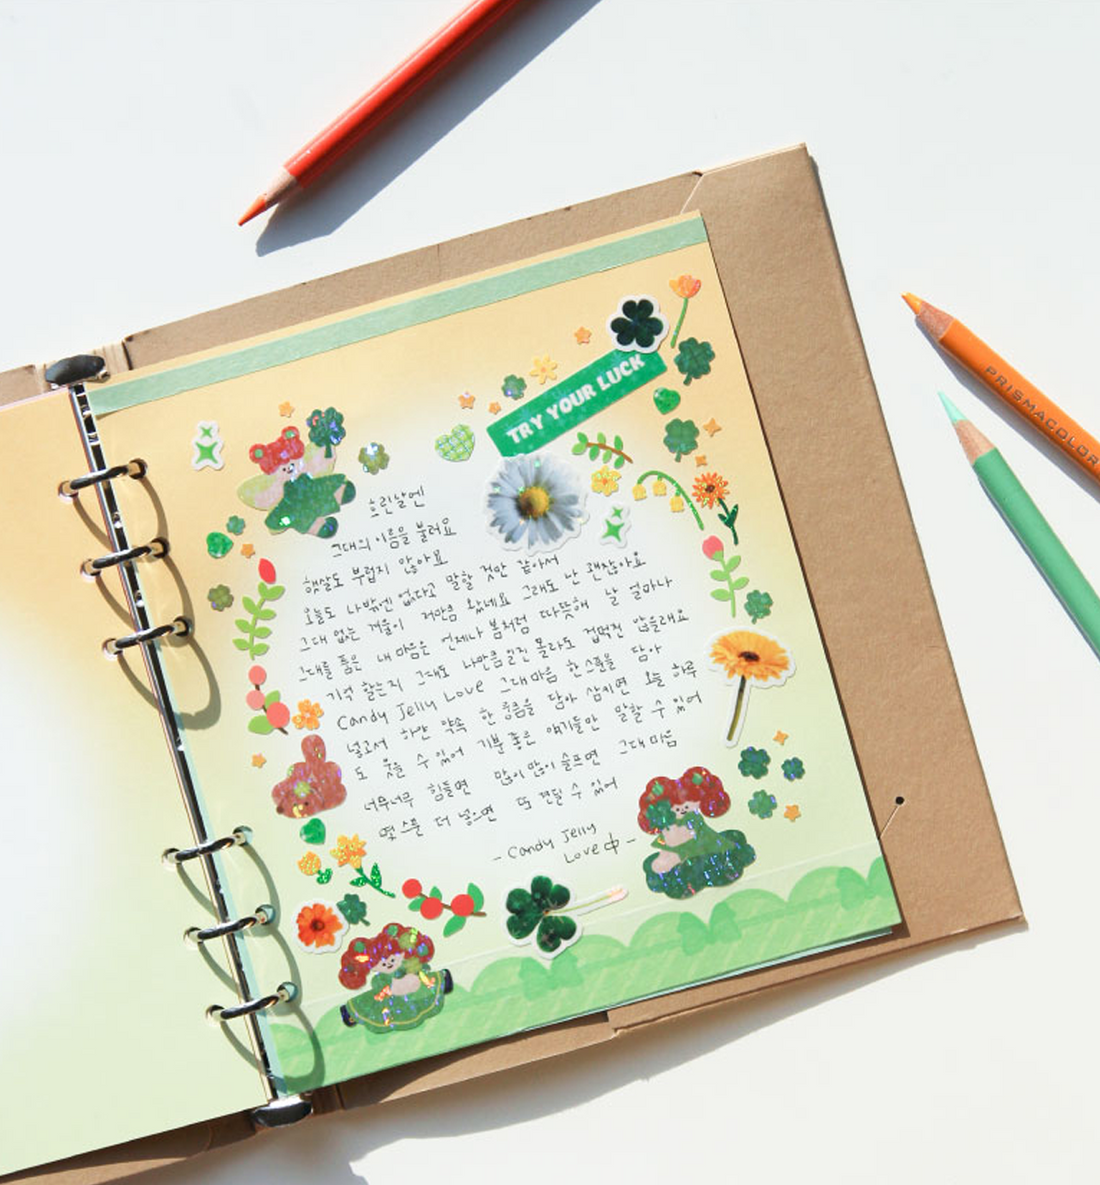 TRY YOUR LUCK
흐린날엔
그대의 이름을 불러요
햇살도 부럽지 않아요
오늘도 나밖엔 없다고 말할 것만 같아서
그대 없는 겨울이 저만큼 왔네요 그래도 난 괜찮아요
그대를 품은 내 마음은 언제나 봄처럼 따뜻해 날 얼마나
기억 할는지 그대도 나만큼일진 몰라도 겁먹진 않을래요
Candy Jelly Love 그대마음 한스푼을 담아
넣고서 하얀 약속 한 웅큼을 담아 삼키면 오늘 하루
도 웃을 수 있어 기분 좋은 얘기들만 말할 수 있어
너무너무 힘들면 많이 많이 슬프면 그대 마음
몇 스푼 더 넣으면 또 견딜 수 있어
- Candy Jelly
Love 中 -
PRISMACOLOR